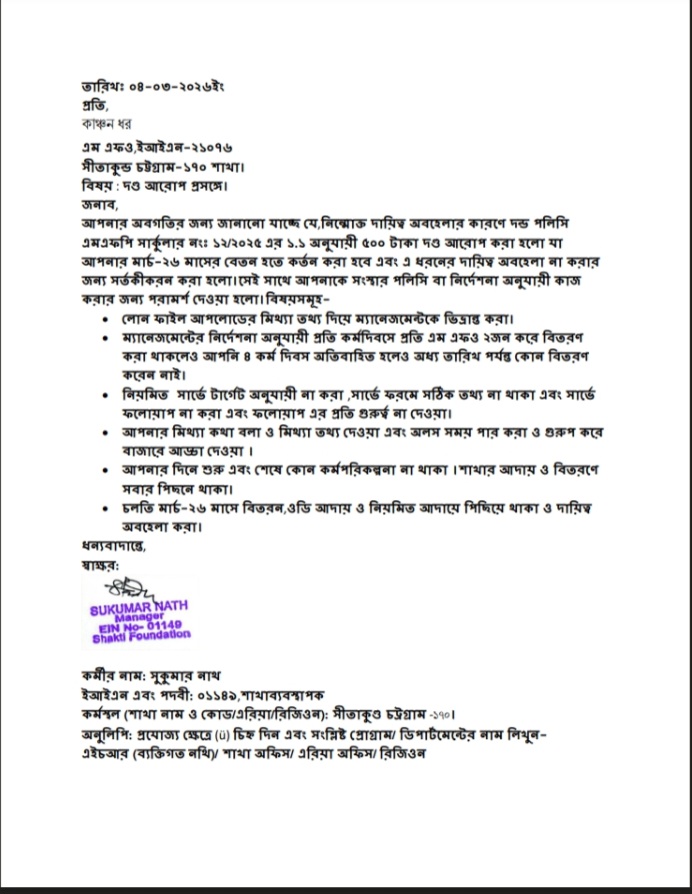 তারিখঃ ০৪-০৩-২০২৬ইং
প্রতি,
কাঞ্চন ধর
এম এফও,ইআইএন-২১০৭৬
সীতাকুন্ড চট্টগ্রাম-১৭০ শাখা।
বিষয় : দণ্ড আরোপ প্রসঙ্গে।
জনাব,
আপনার অবগতির জন্য জানানো যাচ্ছে যে,নিম্মোক্ত দায়িত্ব অবহেলার কারণে দন্ড পলিসি
এমএফপি সার্কুলার নংঃ ১২/২০২৫ এর ১.১ অনুযায়ী ৫০০ টাকা দণ্ড আরোপ করা হলো যা
আপনার মার্চ-২৬ মাসের বেতন হতে কর্তন করা হবে এবং এ ধরনের দায়িত্ব অবহেলা না করার
জন্য সর্তকীকরন করা হলো।সেই সাথে আপনাকে সংস্থার পলিসি বা নির্দেশনা অনুযায়ী কাজ
করার জন্য পরামর্শ দেওয়া হলো।বিষয়সমূহ-
• লোন ফাইল আপলোডের মিথ্যা তথ্য দিয়ে ম্যানেজমেন্টকে ভিভ্রান্ত করা।
• ম্যানেজমেন্টের নির্দেশনা অনুযায়ী প্রতি কর্মদিবসে প্রতি এম এফও ২জন করে বিতরণ
করা থাকলেও আপনি ৪ কর্ম দিবস অতিবাহিত হলেও অধ্য তারিখ পর্যন্ত কোন বিতরণ
করেন নাই।
• নিয়মিত সার্ভে টার্গেট অনুযায়ী না করা ,সার্ভে ফরমে সঠিক তথ্য না থাকা এবং সার্ভে
ফলোয়াপ না করা এবং ফলোয়াপ এর প্রতি গুরুর্ত্ব না দেওয়া।
• আপনার মিথ্যা কথা বলা ও মিথ্যা তথ্য দেওয়া এবং অলস সময় পার করা ও গুরুপ করে
বাজারে আড্ডা দেওয়া ।
• আপনার দিনে শুরু এবং শেষে কোন কর্মপরিকল্পনা না থাকা ।শাখার আদায় ও বিতরণে
সবার পিছনে থাকা।
• চলতি মার্চ-২৬ মাসে বিতরন,ওডি আদায় ও নিয়মিত আদায়ে পিছিয়ে থাকা ও দায়িত্ব
অবহেলা করা।
ধন্যবাদান্তে,
স্বাক্ষর:
SUKUMAR NATH
Manager
EIN No- 01149
Shakti Foundation
কর্মীর নাম: সুকুমার নাথ
ইআইএন এবং পদবী: ০১১৪৯,শাখাব্যবস্থাপক
কর্মস্থল (শাখা নাম ও কোড/এরিয়া/রিজিওন): সীতাকুণ্ড চট্টগ্রাম -১৭০।
অনুলিপি: প্রযোজ্য ক্ষেত্রে (ü) চিহ্ন দিন এবং সংশ্লিষ্ট প্রোগ্রাম/ ডিপার্টমেন্টের নাম লিখুন-
এইচআর (ব্যক্তিগত নথি)/ শাখা অফিস/ এরিয়া অফিস/ রিজিওন